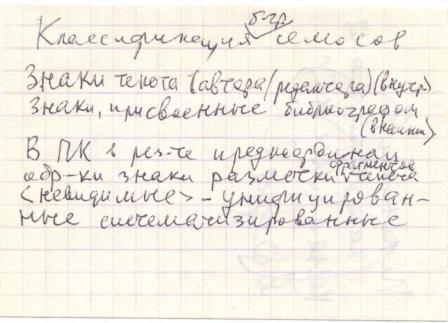 Классификация б-гр. семосов
Знаки текста (автора/редактора) (внутр.)
знаки, присвоенные библиографом
(внешн.)
В ПК в рез-те предкоординац.
обр-ки знаки разметки фрагментов текста
<невидимые> - унифицирован-
ные систематизированные